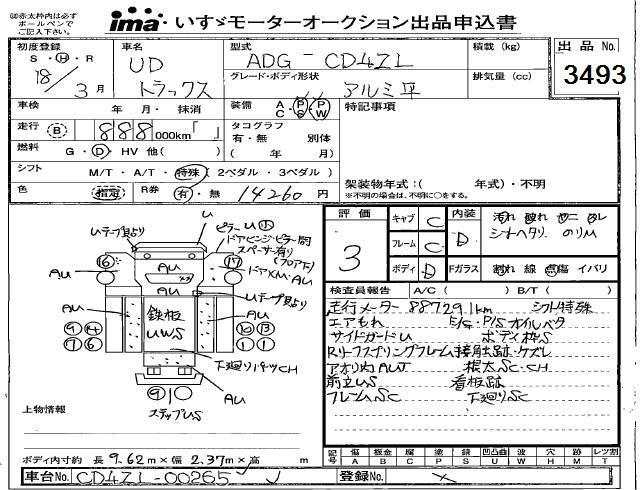 ㊟赤太枠内は必ず
ボールペンで
ご記入下さい。
ima いすゞモーターオークション出品申込書
初度登録
S・H・R
18/3月
車名
UD
トラックス
型式
ADG-CD4ZL
グレード・ボディ形状
アルミ平
積載 (kg)
排気量 (cc)
出品No.
3493
車検 年・月・抹消
装備 A/C P/S P/W
特記事項
走行 B 888 000km「 」
タコグラフ
有・無 別体
( 年 月)
燃料 G・D・HV 他( )
シフト M/T・A/T・特殊(2ペダル・3ペダル)
色 指定 R券 有・無 14260円
架装物年式:( 年式)・不明
※不明の場合は、不明に○をする。
評価
3
キャブ C
フレーム C
ボディ D
内装 D
汚れ
シートヘタリ のりU
Fガラス 割れ 線 点傷 イバリ
検査員報告 A/C( ) B/T( )
走行メーター 88729.1km シフト特殊
エアもれ E/G・P/Sオイルベタ
サイドガードU ボディ枠S
Rリーフスプリングフレーム接触跡・ケズレ
アオリ内AUT 根太SC・CH
前立US 看板跡
フレームSC 下廻りSC
U
Uテープ貼り
ピラーU小
ドアヒンジ・ピラー間
スペーサー有り
(フロア下)
16
17
ドアXM・AU
AU
AU
Uテープ貼り
AU
鉄板
UWS
AU
9 14
7 6
10 13
1 1
AU
下廻りパーツCH
AU
9 1
ステップUS
上物情報
ボディ内寸約 長 9.62m×幅 2.37m×高 m
記号 傷A 板金B 腐C 塗P 錆S 凹凸曲U 波W 穴H 跡M レツ割T
車台No. CD4ZL-00265
登録No.